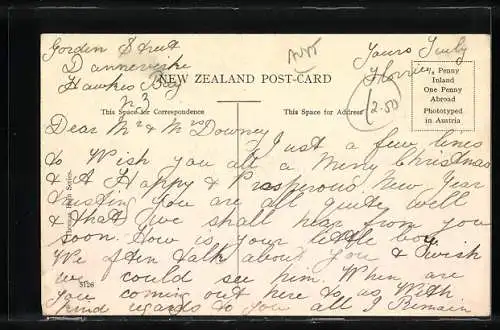 Gorden Street
Dannevirke
Hawkes Bay
N.3
Yours Truly
Florrie
NEW ZEALAND POST-CARD
This Space for Correspondence
This Space for Address
2.50
½ Penny
Inland
One Penny
Abroad
Phototyped
in Austria
Dear Mr & Mrs Downey
Just a few lines
to Wish you all a Merry Christmas
& A Happy & Prosperous New Year
trusting you are all quite well
& that we shall hear from you
soon. How is your little boy
We often talk about you & wish
we could see him. When are
you coming out here to us With
kind regards to you all I Remain
Series.
5126